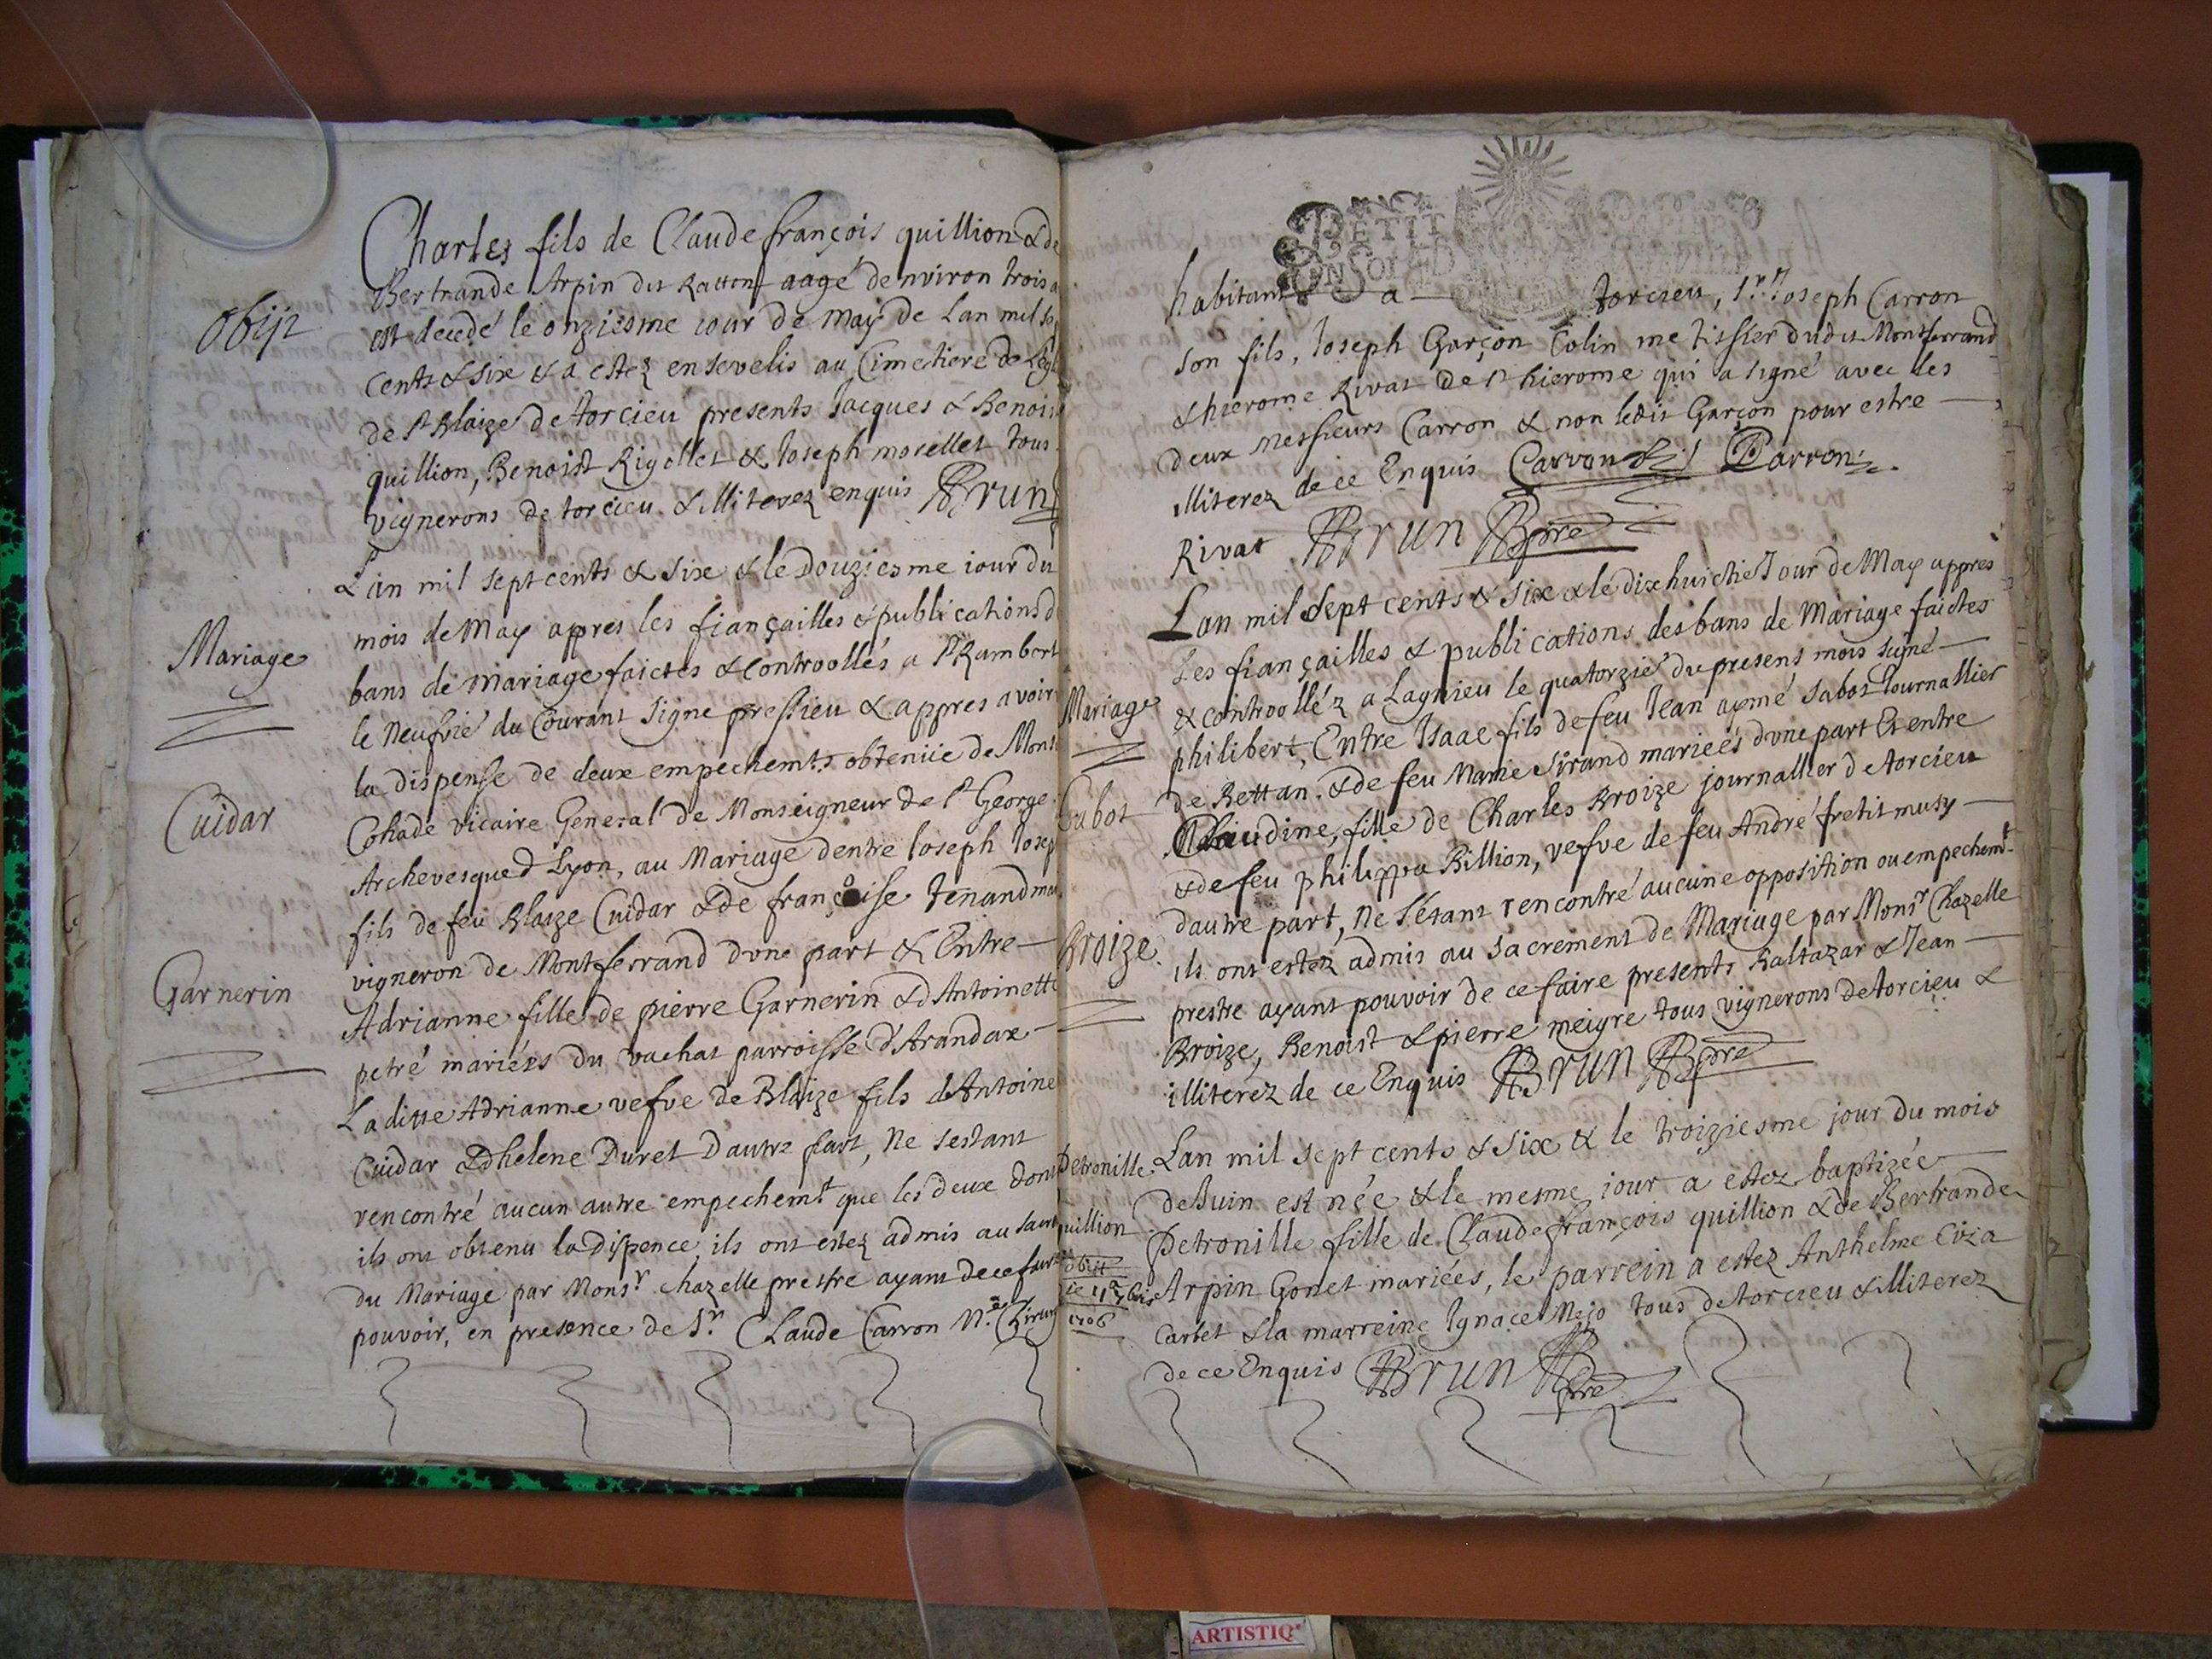 Charles fils de Claude françois quillion & de
Bertrande Arpin dit Ratton aagé denviron trois
obijt
est decedé le onziesme iour de may de Lan mil
cents & six & a estez ensevelis au Cimetiere de
de St Blaize de torcieu presents Jacques & Benoist
quillion, Benoist Rigollet & Joseph morellet tous
vignerons de torcieu & illiterez enquis Brun
Lan mil sept cents & six & le Douziesme iour du
mois de May appres les fiançailles & publications
Mariage
bans de Mariage faictes & Controollés a St Rambert
le Neufvié du Courant signe pressieu & appres avoir
la dispense de deux empechemts obtenüe de
Cuidar
Cohade vicaire General de Monseigneur de St George
Archevesque d Lyon, au Mariage dentre Joseph
fils de feu Blaize Cuidar & de françoise tenand
vigneron de Montferrand dune part & Entre
Garnerin
Adrianne fille de pierre Garnerin & d Antoinette
petré mariées du vachat parroisse d'Arandax
Laditte Adrianne vefve de Blaize fils d'Antoine
Cuidar & dhelene Duret Dautre part, Ne sestant
rencontré aucun autre empechemt que les deux dont
ils ont obtenu la Dispence, ils ont estez admis au
du Mariage par Monsr Chazelle prestre ayant de ce faire
pouvoir, en presence de Sr Claude Carron Nre
PETIT
habitant a torcieu, Sr Joseph Carron
son fils, Joseph Garçon Colin me tissier dudit Montferrand
& hierome Rivat de St hierome qui a signé avec les
deux Messieurs Carron & non ledit Garçon pour estre
illiterez de ce Enquis Carron Carron
Rivat Brun pre
Lan mil sept cents & six & le dixhuictie Jour de May appres
Les fiançailles & publications des bans de Mariage faictes
Mariage
& controolléz a Lagnieu le quatorzié du present mois signé
philibert, Entre Isaac fils de feu Jean aymé Sabot Journallier
Sabot
de Bettan & de feu Marie Sirand mariées dune part Et entre
Claudine, fille de Charles Broize journallier de torcieu
& de feu philippa Billion, vefve de feu André fretit musy
dautre part, Ne s'étant rencontré aucune opposition ou empechemt
Broize
ils ont estez admis au sacrement de Mariage par Monsr Chazelle
prestre ayant pouvoir de ce faire presents Baltazar & Jean
Broize, Benoist & pierre meigre tous vignerons de torcieu &
illiterez de ce Enquis Brun pre
Petronille
quillion
obiit
le 11e 7bris
1706
Lan mil sept cents & six & le troiziesme jour du mois
de Juin est née & le mesme iour a estez baptizée
Petronille fille de Claude françois quillion & de Bertrande
Arpin Gonet mariées, le parrein a estez Anthelme
Cartet & la marreine Ignace Mejo tous de torcieu & illiterez
de ce Enquis Brun pre
ARTISTIQ